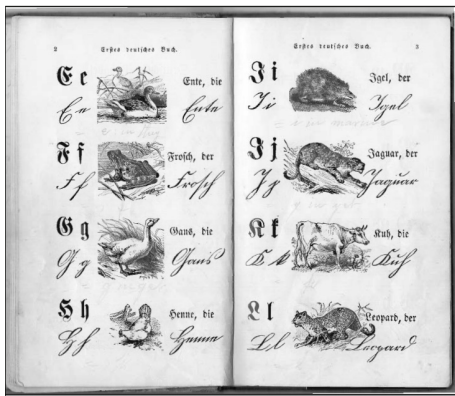 2 Erstes deutsches Buch.
E e Ente, die
E e Ente
F f Frosch, der
F f Frosch
G g Gans, die
G g Gans
H h Henne, die
H h Henne
Erstes deutsches Buch. 3
I i Igel, der
I i Igel
J j Jaguar, der
J j Jaguar
K k Kuh, die
K k Kuh
L l Leopard, der
L l Leopard